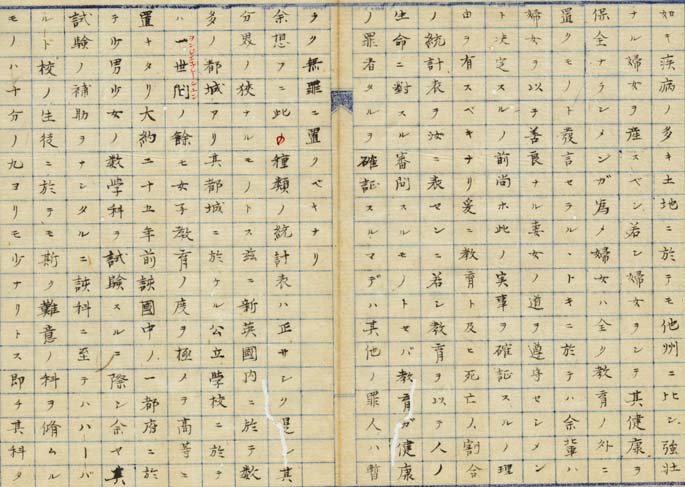 如キ疾病ノ多キ土地ニ於テモ他州ニ比シ強壮
ナル婦女ヲ産スベシ若シ婦女ヲシテ其健康ヲ
保全ナラシメンガ為メ婦女ハ全ク教育ノ外ニ
置クモノト發言セラルヽトキニ於テハ余輩ハ
婦女ヲ以テ善良ナル妻女ノ道ヲ遵守セシメン
ト决定スルノ前尚ホ此ノ実事ヲ確証スルノ理
由ヲ有スベキナリ爰ニ教育ト及ヒ死亡ノ割合
ノ統計表ヲ汝ニ表セシニ若シ教育ヲ以テ人ノ
生命ニ對スル審問スルモノトセバ教育ガ健康
ノ罪者タルヲ確証スルマデハ其他ノ罪人ハ暫
ラク無罪ニ置クベキナリ
余想フニ此ノ種類ノ統計表ハ正サシク是シ其
分界ノ狭ナルモノトス茲ニ新英國内ニ於テ数
多ノ都城アリ其都城ニ於ケル公立學校ニ於テ
ハ一世間ノ餘モ女子教育ノ度ヲ極メヲ高等ニ
置キタリ大約二十五年前該國中ノ一都府ニ於
テ少男少女ノ数學科ヲ試験スルニ際シ余ヤ其
試験ノ補助ヲナシタルニ該科ニ至テハハーバ
ルド校ノ生徒ニ於テモ斯ク難意ノ科ヲ脩ムル
モノハ十分ノ九ヨリモ少ナリトス即チ其科タ